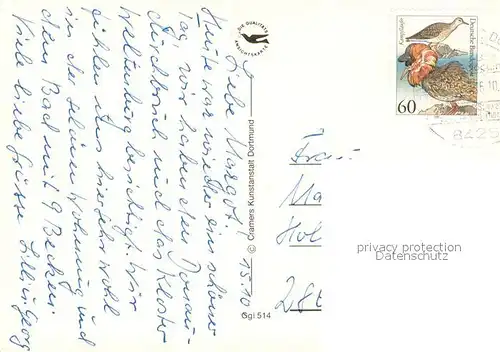 Liebe Margot! 15.10
Heute war wieder ein schöner
Tag wir haben den Donau-
durchbruch und das Kloster
Weltenburg besichtigt. Wir
fühlen uns hier sehr wohl
in der schönen Wohnung und
dem Bad mit 9 Becken.
Viele liebe Grüsse Lilli u. Georg
DIE QUALITÄTS
ANSICHTSKARTE
© Cramers Kunstanstalt Dortmund
Ggi 514
Kampfläufer
Deutsche Bundespost
60
8429
Frau
Ma
Hol
privacy protection
Datenschutz